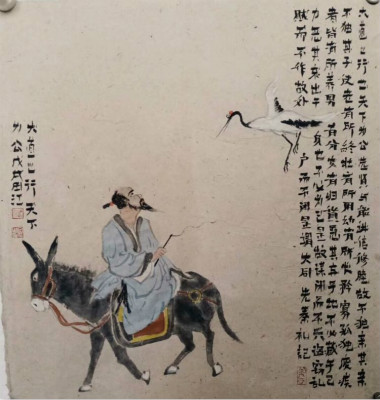 大道之行也天下为公选贤与能讲信修睦故不独亲其亲
不独其子使老有所终壮有所用幼有所长矜寡孤独废疾
者皆有所养男有分女有归货恶其弃于地也不必藏于己
力恶其不出于身也不必为己是故谋闭而不兴盗窃乱
贼而不作故外户而不闭是谓大同先秦礼记
大道之行天下
为公戊戌周江